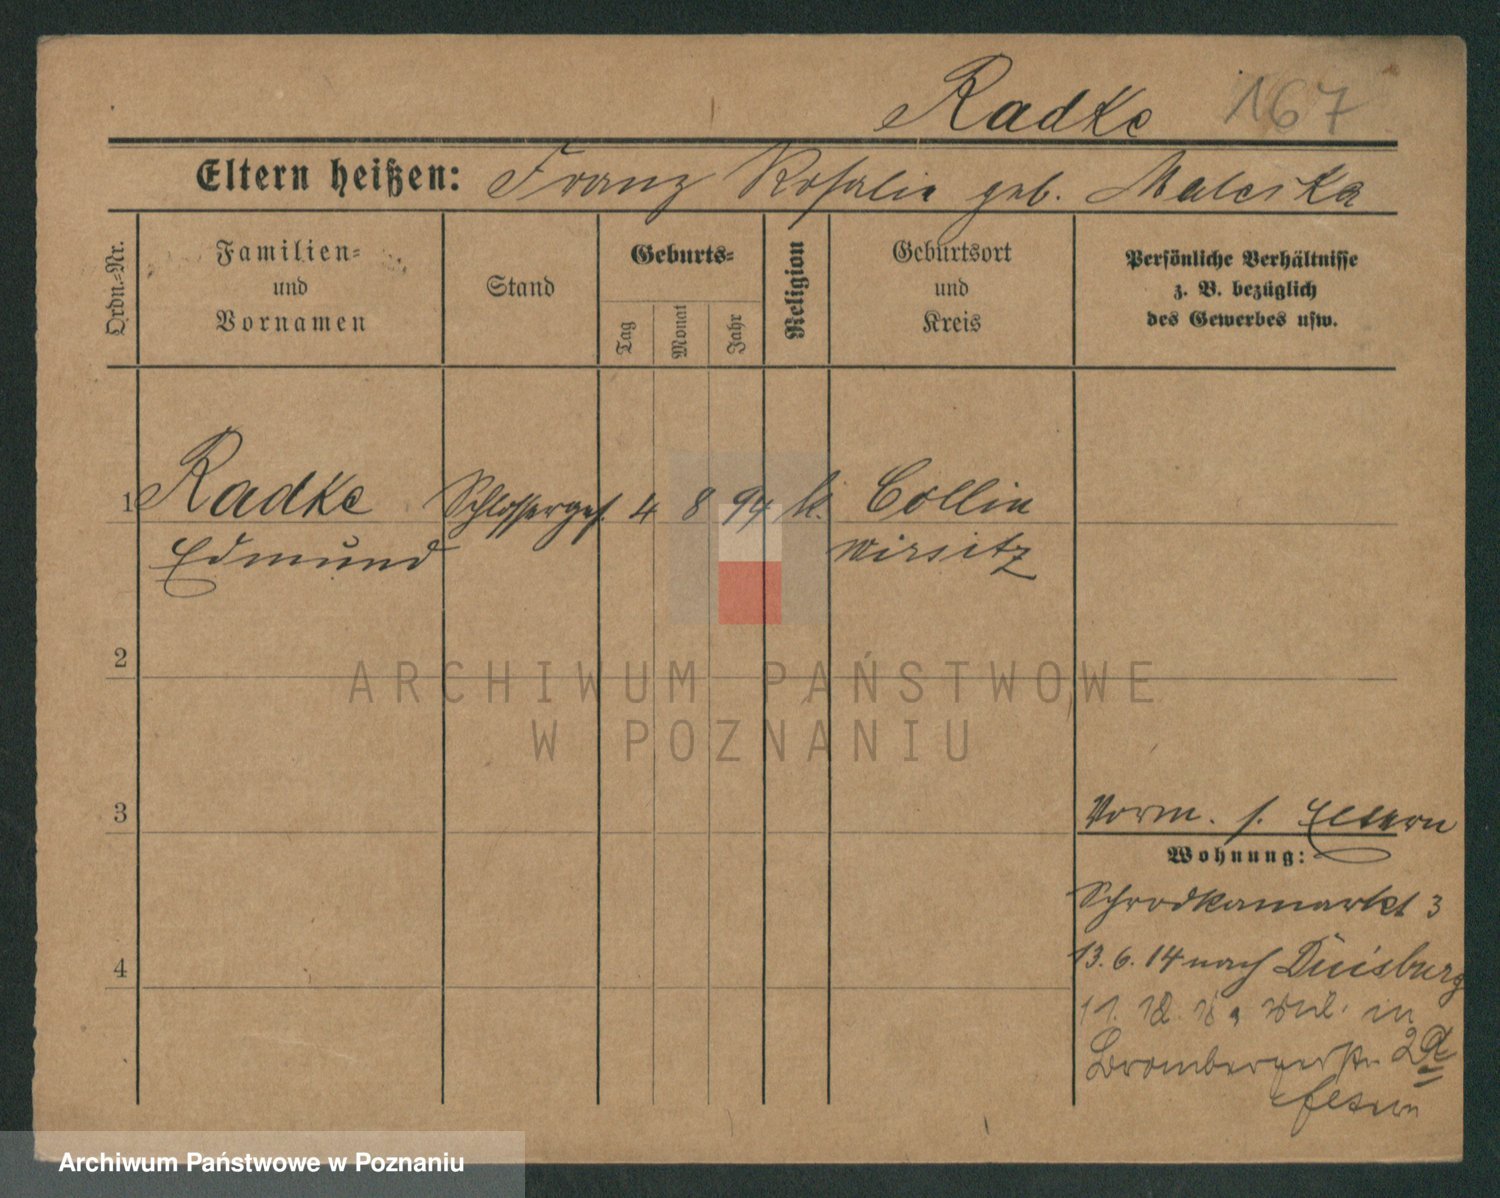 Radke 167
Eltern heißen: Franz Rosalie geb. Maleska
Ordn.-Nr.
Familien-
und
Vornamen
Stand
Geburts-
Tag
Monat
Jahr
Religion
Geburtsort
und
Kreis
Persönliche Verhältnisse
z. B. bezüglich
des Gewerbes usw.
1 Radke Schlosserges. 4 8 94 k. Collin
Edmund Wirsitz
2
3
4
Vorm. s. Eltern
Wohnung:
Schrodkamarkt 3
13. 6. 14 nach Duisburg
11. in
Brombergerstr 2a
Eltern
ARCHIWUM PAŃSTWOWE
W POZNANIU
Archiwum Państwowe w Poznaniu